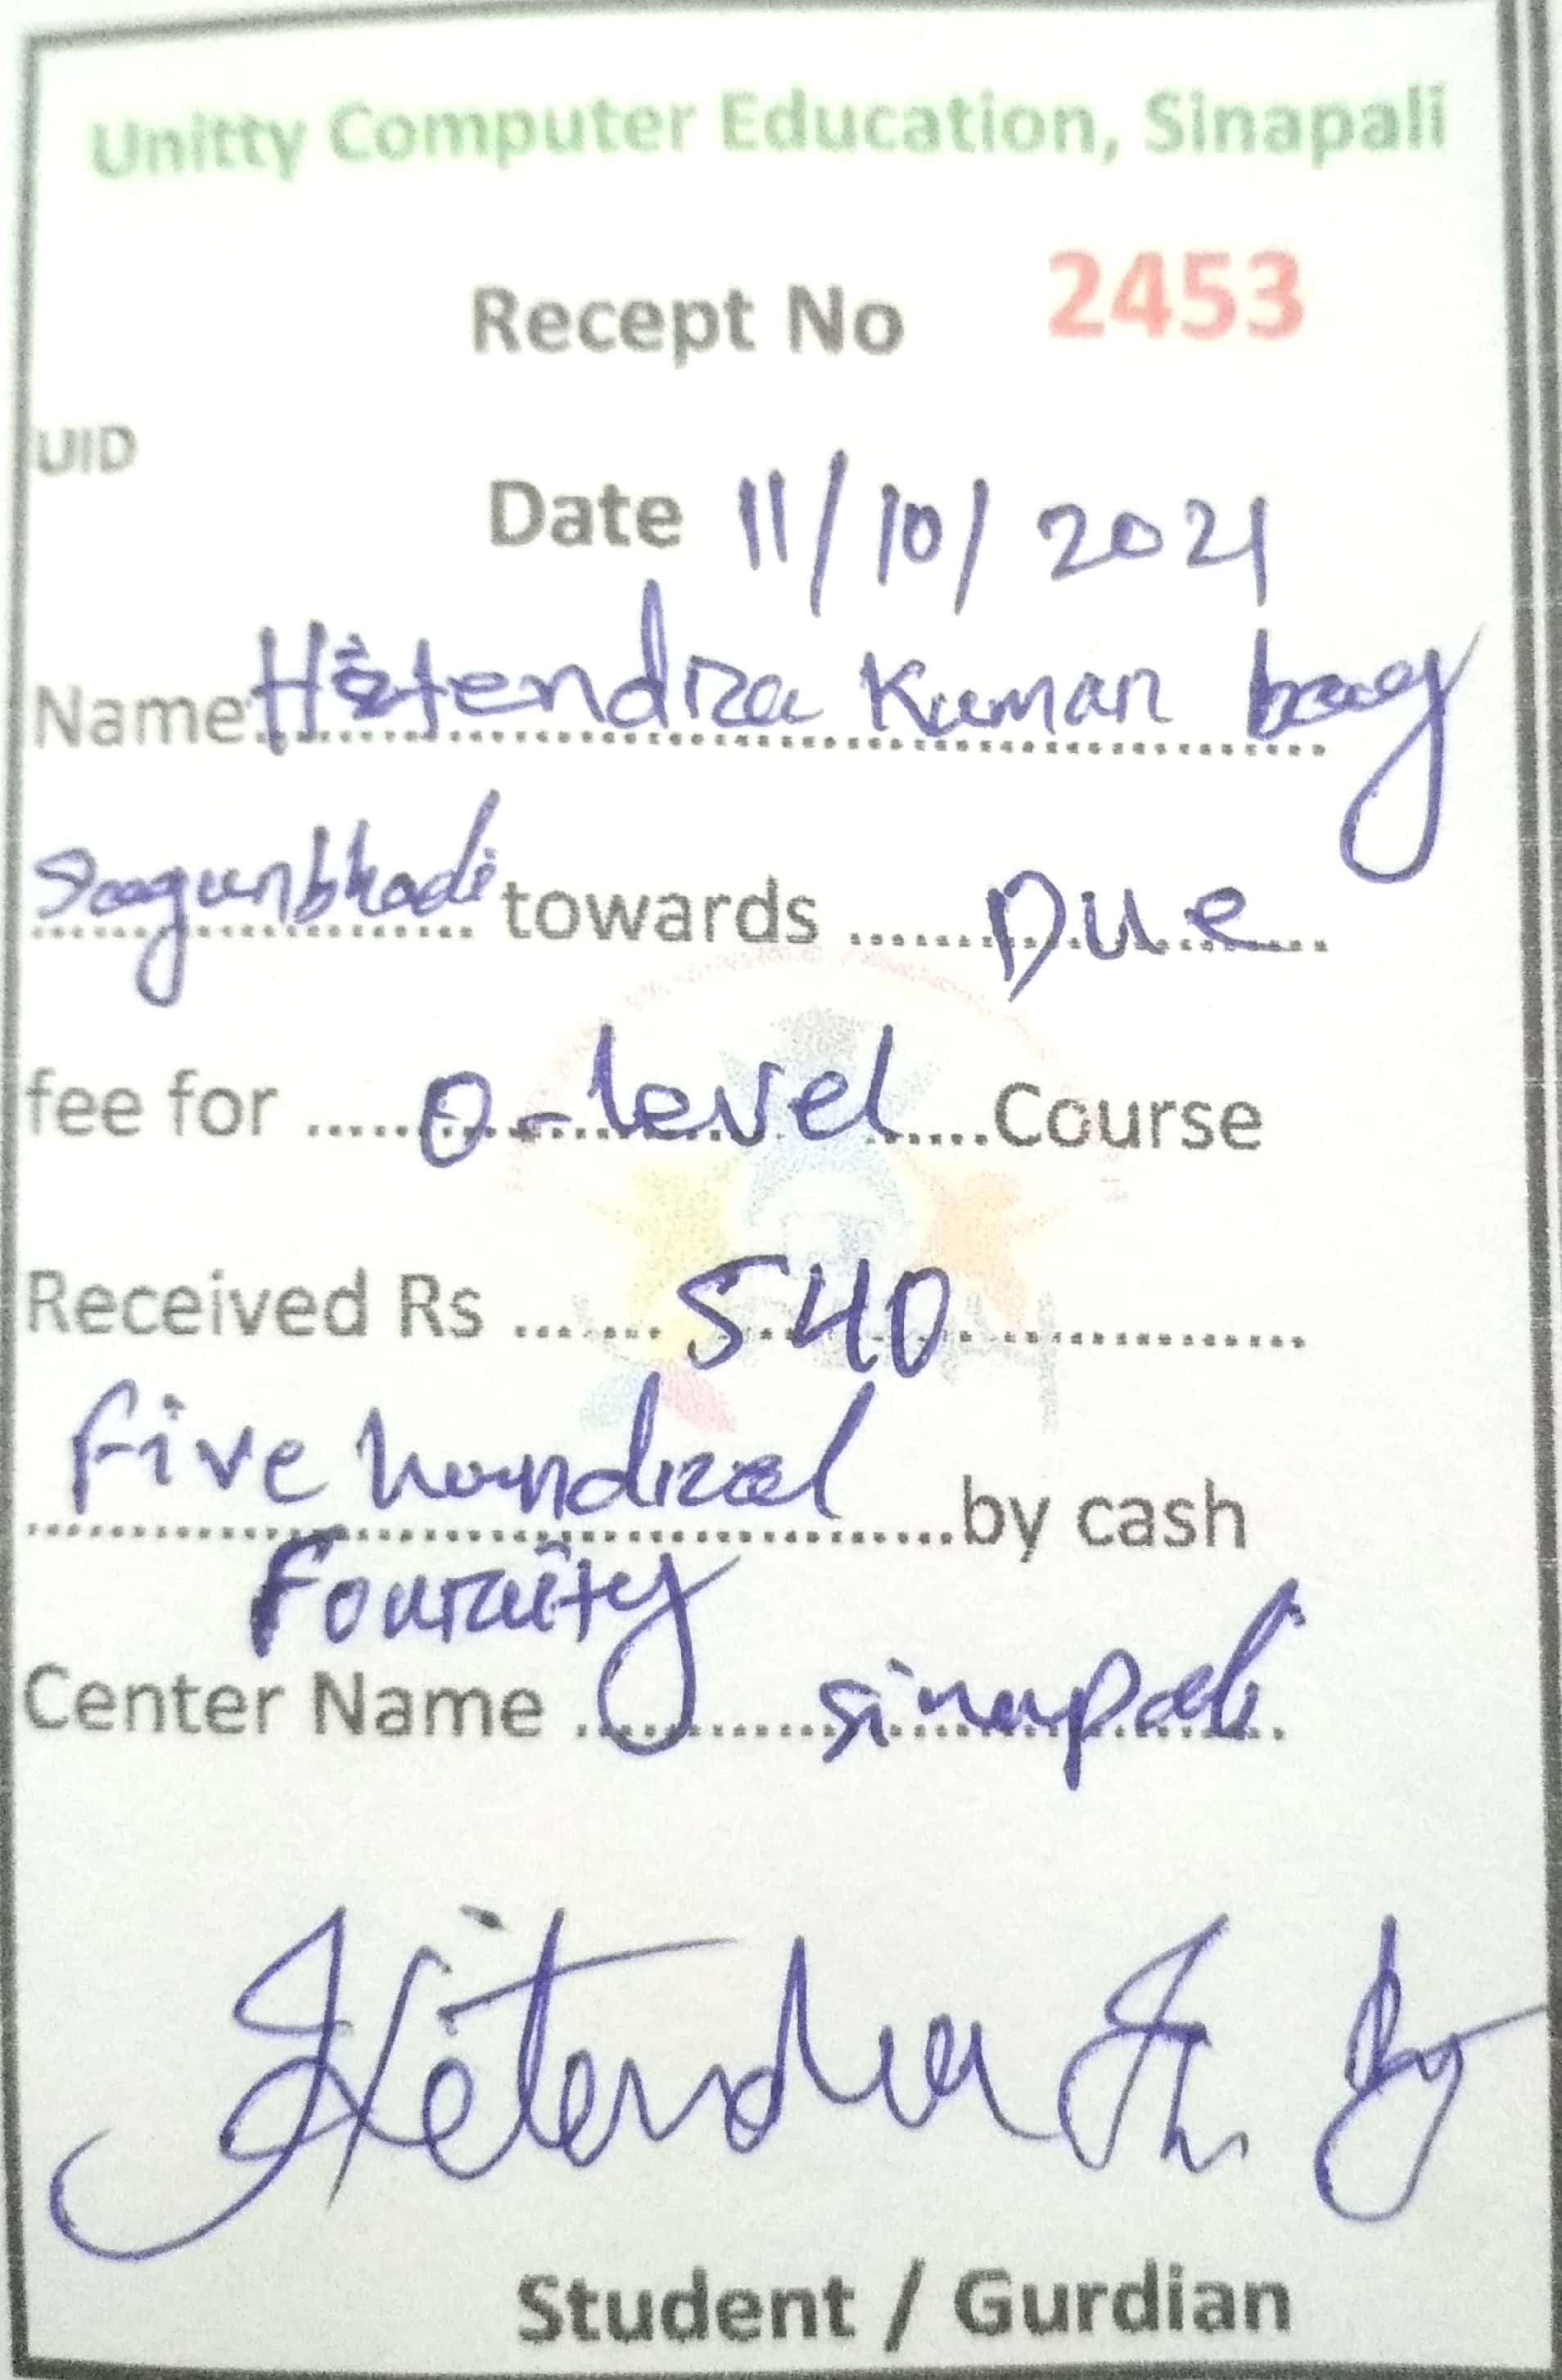 Unitty Computer Education, Sinapali
Recept No 2453
UID
Date 11/10/2021
Name Hitendra Kumar bag
Sagunbhadi towards ........ Due
fee for ..... O-level ..... Course
Received Rs ....... 540
Five hundred by cash
Fourty
Center Name ... sinapali
Hitendra Kr. Bag
Student / Gurdian